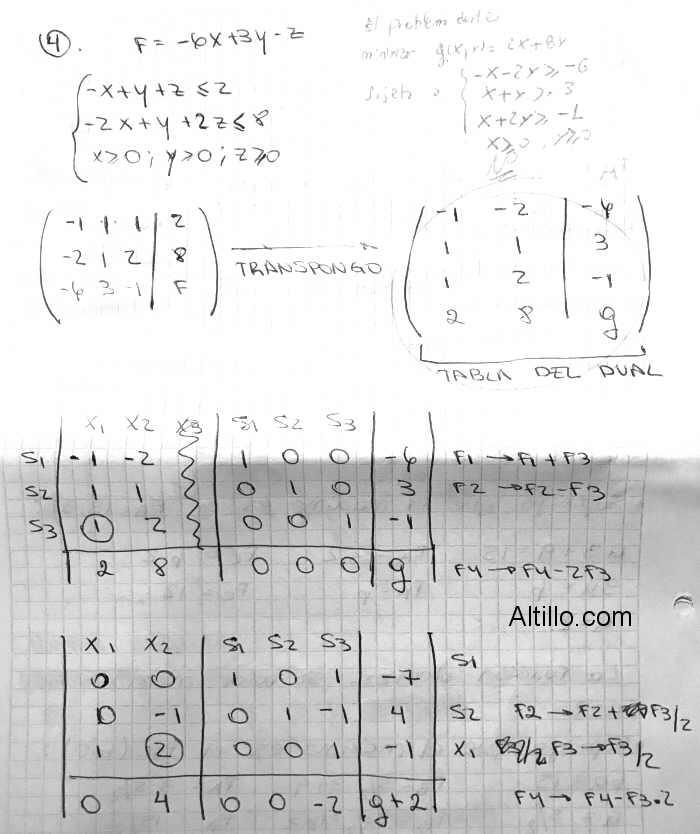 4. F = -6x+3y-z
El problem dual es
minimizar g(x,y) = 2x+8y
sujeto a
-x-2y ≥ -6
x+y ≥ 3
x+2y ≥ -1
x ≥ 0, y ≥ 0
-x+y+z ≤ 2
-2x+y+2z ≤ 8
x ≥ 0; y ≥ 0; z ≥ 0
-1 1 1 | 2
-2 1 2 | 8
-6 3 -1 | F
TRANSPONGO
-1 -2 | -6
1 1 | 3
1 2 | -1
2 8 | g
TABLA DEL DUAL
X1 X2 X3 | S1 S2 S3
S1 | -1 -2 | 1 0 0 | -6 | F1 → F1 + F3
S2 | 1 1 | 0 1 0 | 3 | F2 → F2 - F3
S3 | 1 2 | 0 0 1 | -1
2 8 | 0 0 0 | g | F4 → F4 - 2F3
Altillo.com
X1 X2 | S1 S2 S3
0 0 | 1 0 1 | -7 | S1
0 -1 | 0 1 -1 | 4 | S2 F2 → F2 + F3/2
1 2 | 0 0 1 | -1 | X1 F3 → F3/2
0 4 | 0 0 -2 | g+2 | F4 → F4 - F3·2